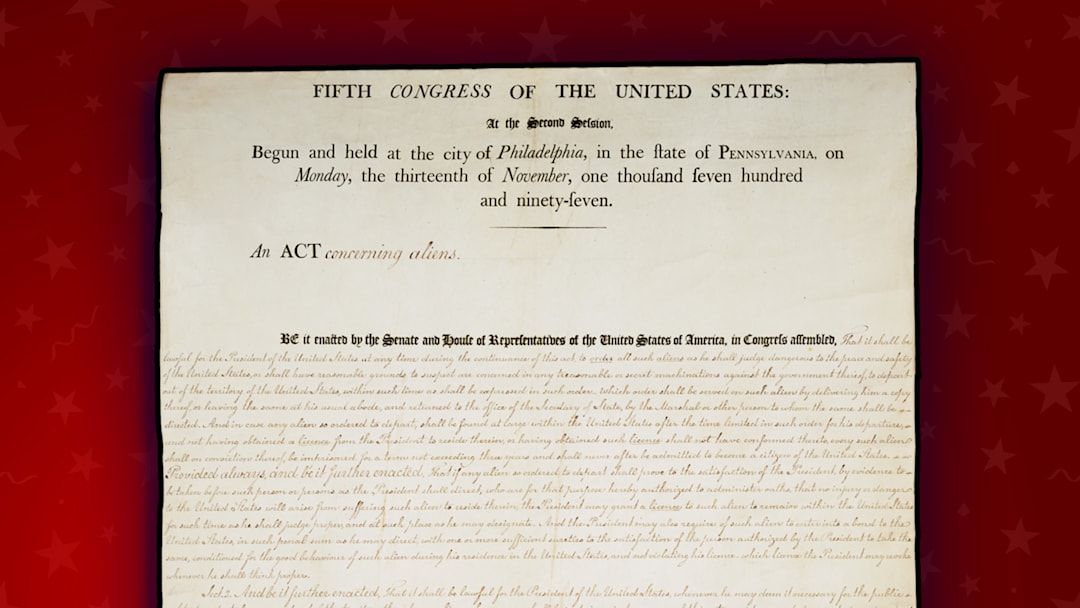 FIFTH CONGRESS OF THE UNITED STATES:
At the Second Session,
Begun and held at the city of Philadelphia, in the ſtate of PENNSYLVANIA, on
Monday, the thirteenth of November, one thouſand ſeven hundred
and ninety-ſeven.
An ACT concerning aliens.
BE it enacted by the Senate and House of Representatives of the United States of America, in Congreſs aſſembled, That it shall be
lawful for the President of the United States at any time during the continuance of this act, to order all such aliens as he shall judge dangerous to the peace and safety
of the United States, or shall have reasonable grounds to suspect are concerned in any treasonable or secret machinations against the government thereof, to depart
out of the territory of the United States, within such time as shall be expressed in such order, which order shall be served on such alien by delivering him a copy
thereof, or leaving the same at his usual abode, and returned to the office of the Secretary of State, by the Marshal or other person to whom the same shall be
directed. And in case any alien so ordered to depart, shall be found at large within the United States after the time limited in such order for his departure,
and not having obtained a licence from the President to reside therein, or having obtained such licence shall not have conformed thereto, every such alien
shall on conviction thereof, be imprisoned for a term not exceeding three years and shall never after be admitted to become a citizen of the United States.
Provided always, and be it further enacted, That if any alien so ordered to depart shall prove to the satisfaction of the President, by evidence to
be taken before such person or persons as the President shall direct, who are for that purpose hereby authorized to administer oaths, that no injury or danger
to the United States will arise from suffering such alien to reside therein, the President may grant a licence to such alien to remain within the United States
for such time as he shall judge proper, and at such place as he may designate. And the President may also require of such alien to enter into a bond to the
United States, in such penal sum as he may direct, with one or more sufficient sureties to the satisfaction of the person authorized by the President to take the
same, conditioned for the good behaviour of such alien during his residence in the United States, and not violating his licence, which licence the President may revoke
whenever he shall think proper.
Sect. 2. And be it further enacted, That it shall be lawful for the President of the United States, whenever he may deem it necessary for the public